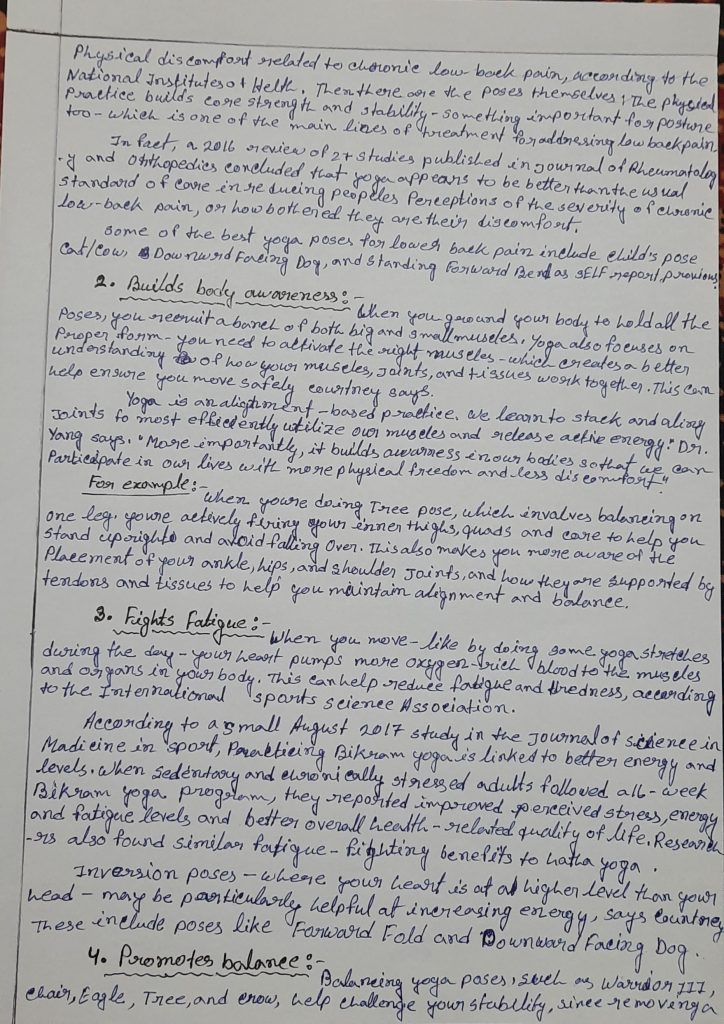 Physical discomfort related to chronic low-back pain, according to the
National Institutes of Helth. Then there are the poses themselves; The physical
Practice builds core strength and stability - something important for posture
too - which is one of the main lines of treatment for addresing low back pain
In fact, a 2016 review of 27 studies published in journal of Rheumatolog
-y and Orthopedics concluded that yoga appears to be better than the usual
standard of care in reducing peopeles Perceptions of the severity of chronic
low-back pain, or how bothered they are their discomfort.
some of the best yoga poses for lower back pain include child's pose
Cat/Cow, Downward Facing Dog, and Standing Forward Bend as SELF report, previous
2. Builds body awareness:-
When you ground your body to hold all the
Poses, you recruit a banch of both big and small muscles. Yoga also focuses on
Proper form - you need to activate the right muscles - which creates a better
understanding of how your muscles, joints, and tissues work together. This can
help ensure you move safely courtney says.
Yoga is an alignment-based practice. we learn to stack and aling
Joints to most efficiently utilize our muscles and release active energy." Dr.
Yang says. "More importantly, it builds awarness in our bodies so that we can
Participate in our lives with more physical freedom and less discomfort"
For example:-
When youre doing Tree pose, which involves balancing on
one leg. youre actively firing your inner thighs, quads and care to help you
stand upright and avoid falling over. This also makes you more aware of the
Placement of your ankle, hips, and shoulder joints, and how they are supported by
tendons and tissues to help you maintain alignment and balance.
3. Fights Fatigue:-
When you move - like by doing some yoga stretches
during the day - your heart pumps more oxygen-rich blood to the muscles
and organs in your body. This can help reduce fatigue and tiredness, according
to the International sports science Association.
According to a small August 2017 study in the Journal of science in
Madicine in sport, Practicing Bikram yoga is linked to better energy and
levels. when sedentary and chronically stressed adults followed a 16-week
Bikram yoga program, they reported improved perceived stress, energy
and fatigue levels and better overall health-related quality of life. Research
-rs also found similar fatigue-fighting benefits to hatha yoga.
Inversion poses - where your heart is at a higher level than your
head - may be particularly helpful at increasing energy, says Courtney
These include poses like Forward Fold and Downward Facing Dog.
4. Promotes balance:-
Balancing yoga poses, such as Warrior III,
chair, Eagle, Tree, and crow, help challenge your stability, since removing a